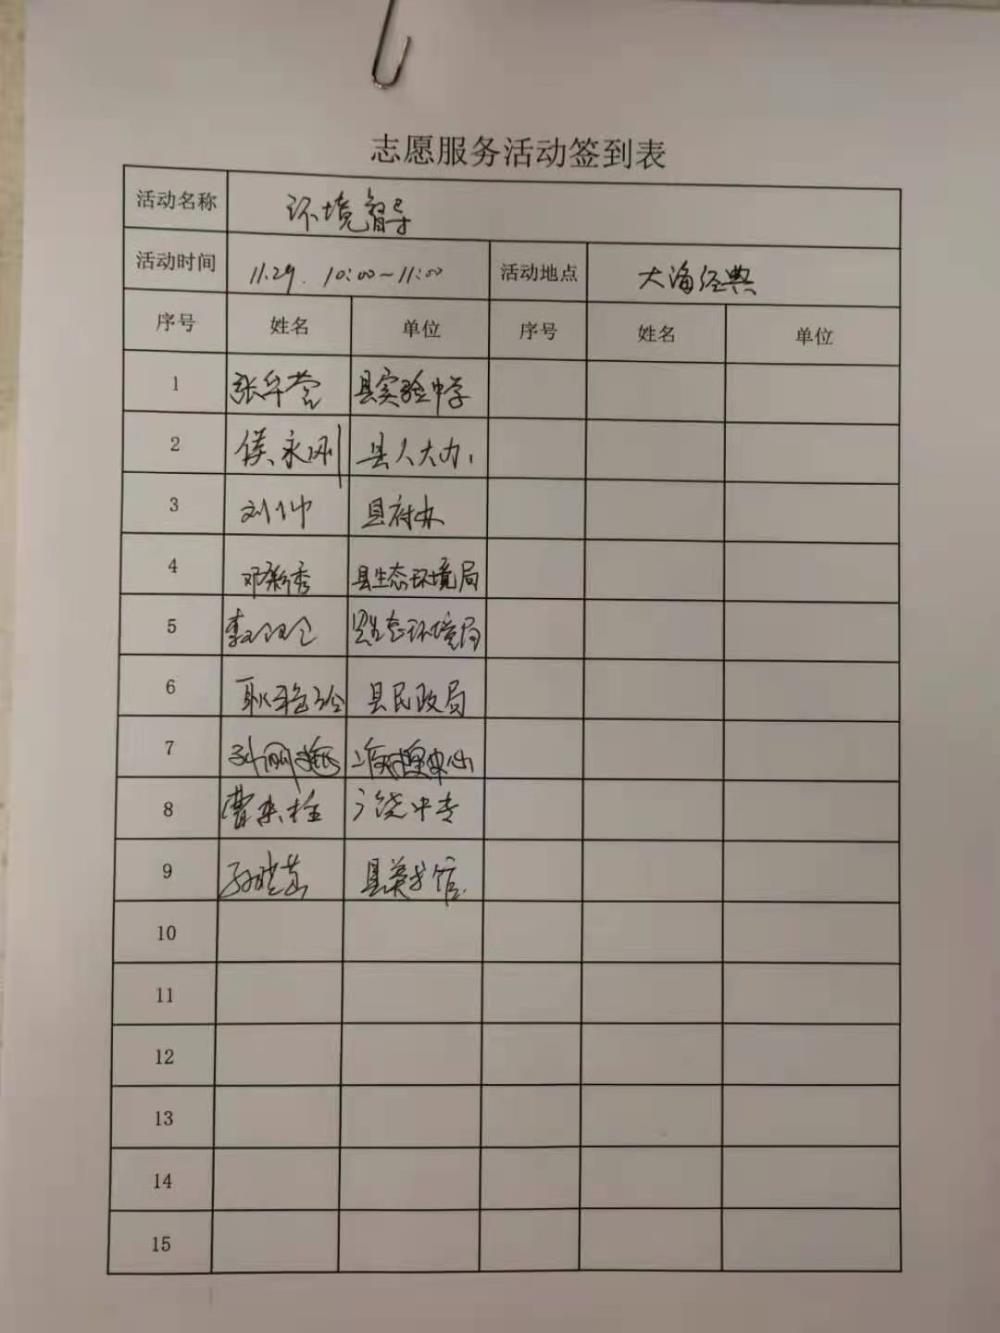 志愿服务活动签到表
活动名称 环境督导
活动时间 11.29. 10:00~11:00 活动地点 大海经典
序号 姓名 单位 序号 姓名 单位
1 县实验中学
2 侯永刚 县人大办
3 刘帅 县府办
4 邓彩秀 县生态环境局
5 县生态环境局
6 县民政局
7
8 广饶中专
9 县美术馆
10
11
12
13
14
15